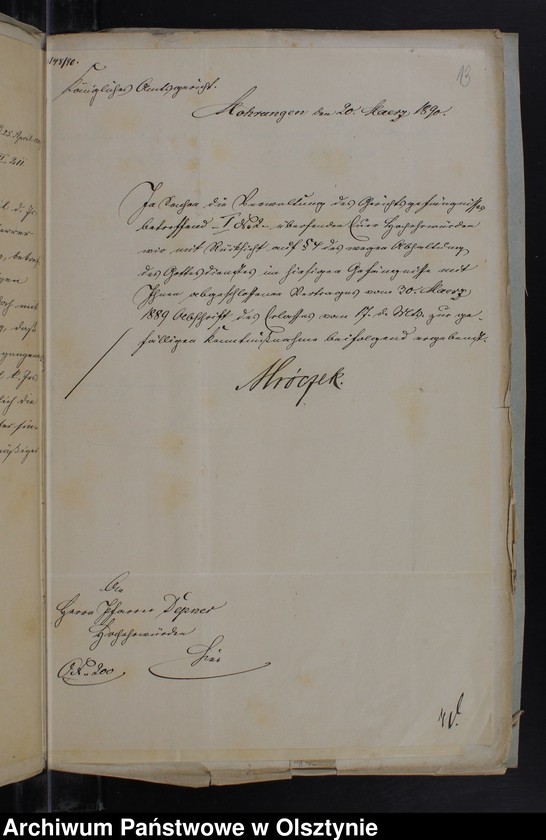 148/90.
13
Königliches Amtsgericht.
Mohrungen den 20. Maerz 1890.
In Sachen die Verwaltung des Gerichtsgefängnisses
betreffend übersenden Euer Hochehrwürden
wir mit Rücksicht auf § 4 des wegen Abhaltung
des Gottesdienstes im hiesigen Gefängnisse mit
Ihnen abgeschlossenen Vertrages vom 30. Maerz
1889 Abschrift des Erlasses vom 17. d. Mts. zur ge-
fälligen Kenntnißnahme beifolgend ergebenst.
Mroczek.
An
Herrn Pfarrer
Hochehrwürden
hier
200
25. April
daß
Archiwum Państwowe w Olsztynie